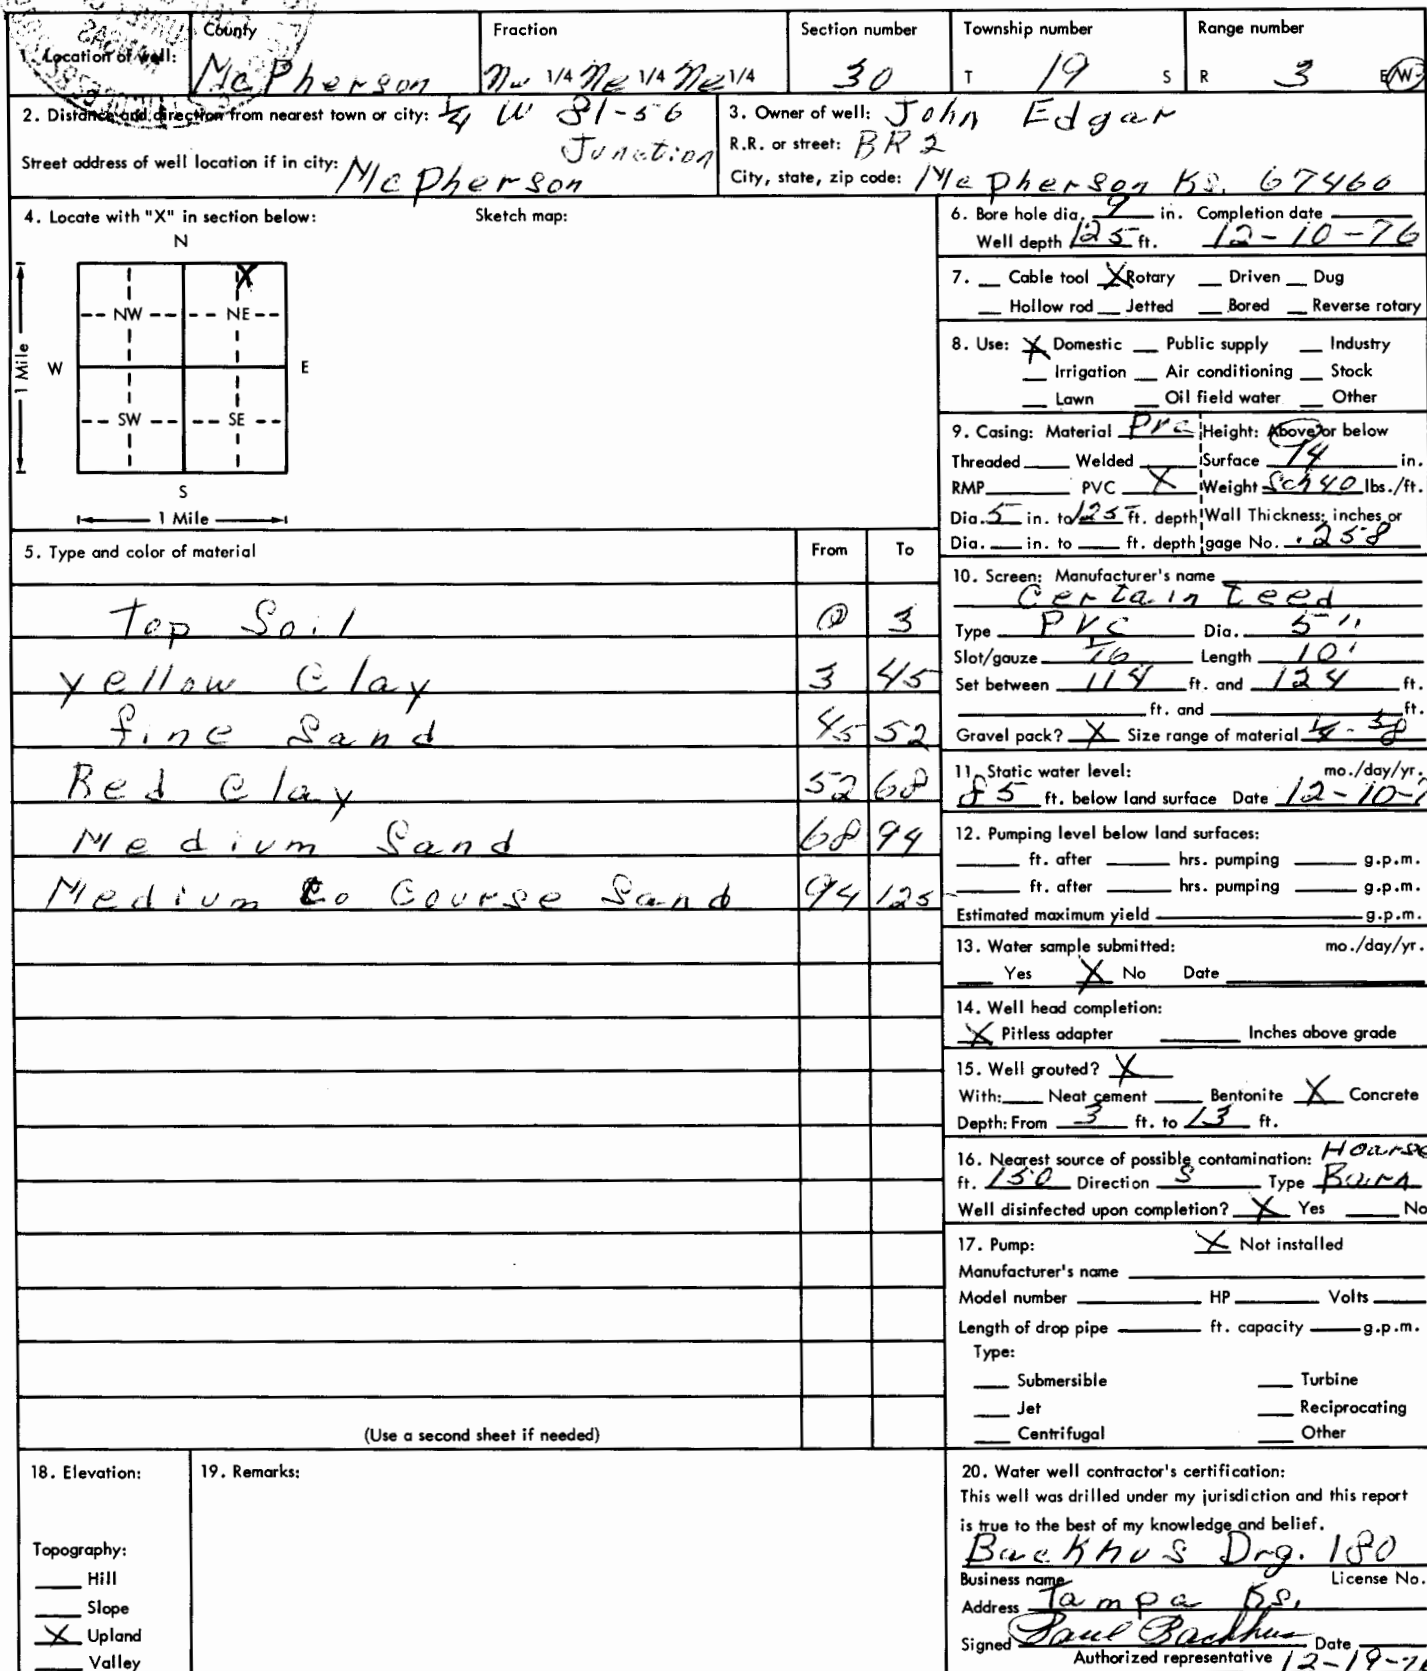 County Fraction Section number Township number Range number
1. Location of well: McPherson Nw 1/4 Ne 1/4 Ne 1/4 30 T 19 S R 3 E/W
2. Distance and direction from nearest town or city: 1/4 W 81-56
Junction
Street address of well location if in city: McPherson
3. Owner of well: John Edgar
R.R. or street: BR2
City, state, zip code: McPherson Ks. 67460
4. Locate with "X" in section below: Sketch map:
N
X
NW NE
W E
1 Mile
SW SE
S
1 Mile
6. Bore hole dia. 9 in. Completion date
Well depth 125 ft. 12-10-76
7. Cable tool X Rotary Driven Dug
Hollow rod Jetted Bored Reverse rotary
8. Use: X Domestic Public supply Industry
Irrigation Air conditioning Stock
Lawn Oil field water Other
9. Casing: Material PVC Height: Above or below
Threaded Welded Surface 14 in.
RMP PVC X Weight Sch 40 lbs./ft.
Dia. 5 in. to 125 ft. depth Wall Thickness: inches or
Dia. in. to ft. depth gage No. .258
5. Type and color of material From To
Top Soil 0 3
yellow Clay 3 45
fine Sand 45 52
Red Clay 52 68
Medium Sand 68 94
Medium to Course Sand 94 125
(Use a second sheet if needed)
10. Screen: Manufacturer's name
Certain teed
Type PVC Dia. 5"
Slot/gauze 1/16 Length 10'
Set between 114 ft. and 124 ft.
ft. and ft.
Gravel pack? X Size range of material 1/4 - 3/8
11. Static water level: mo./day/yr.
85 ft. below land surface Date 12-10-7
12. Pumping level below land surfaces:
ft. after hrs. pumping g.p.m.
ft. after hrs. pumping g.p.m.
Estimated maximum yield g.p.m.
13. Water sample submitted: mo./day/yr.
Yes X No Date
14. Well head completion:
X Pitless adapter Inches above grade
15. Well grouted? X
With: Neat cement Bentonite X Concrete
Depth: From 3 ft. to 13 ft.
16. Nearest source of possible contamination: Hourse
ft. 150 Direction S Type Barn
Well disinfected upon completion? X Yes No
17. Pump: X Not installed
Manufacturer's name
Model number HP Volts
Length of drop pipe ft. capacity g.p.m.
Type:
Submersible Turbine
Jet Reciprocating
Centrifugal Other
18. Elevation: 19. Remarks:
Topography:
Hill
Slope
X Upland
Valley
20. Water well contractor's certification:
This well was drilled under my jurisdiction and this report
is true to the best of my knowledge and belief.
Backhus Drg. 180
Business name License No.
Address Tampa Ks.
Signed Paul Backhus Date
Authorized representative 12-19-76